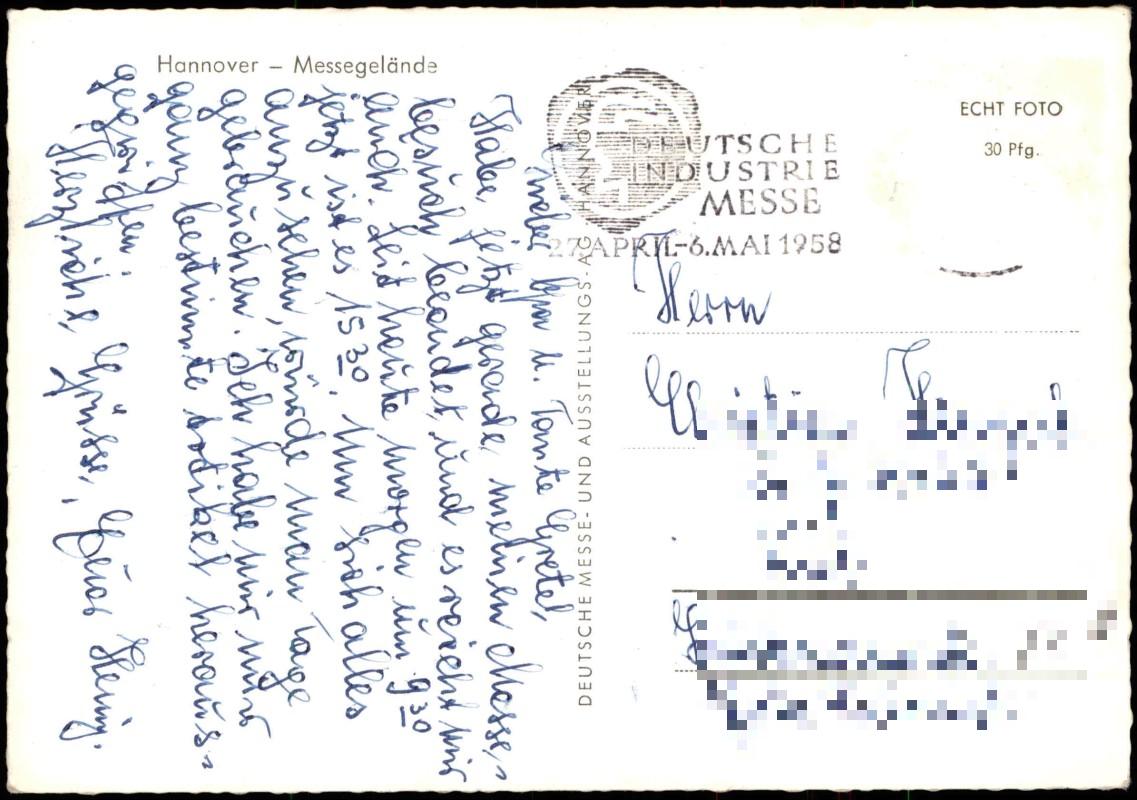 Hannover – Messegelände
ECHT FOTO
30 Pfg.
DEUTSCHE
INDUSTRIE
MESSE
27. APRIL-6. MAI 1958
DEUTSCHE MESSE- UND AUSSTELLUNGS-AG. HANNOVER
u. Tante Gretel,
Habe jetzt gerade meinen Messe-
besuch beendet, und es reicht mir
auch. Seit heute morgen um 9 30
jetzt ist es 15 30. Um sich alles
anzusehen, würde man Tage
gebrauchen. Ich habe mir nur
ganz bestimmte heraus-
gegriffen.
Herzliche Grüsse, Euer Heini.
Herrn